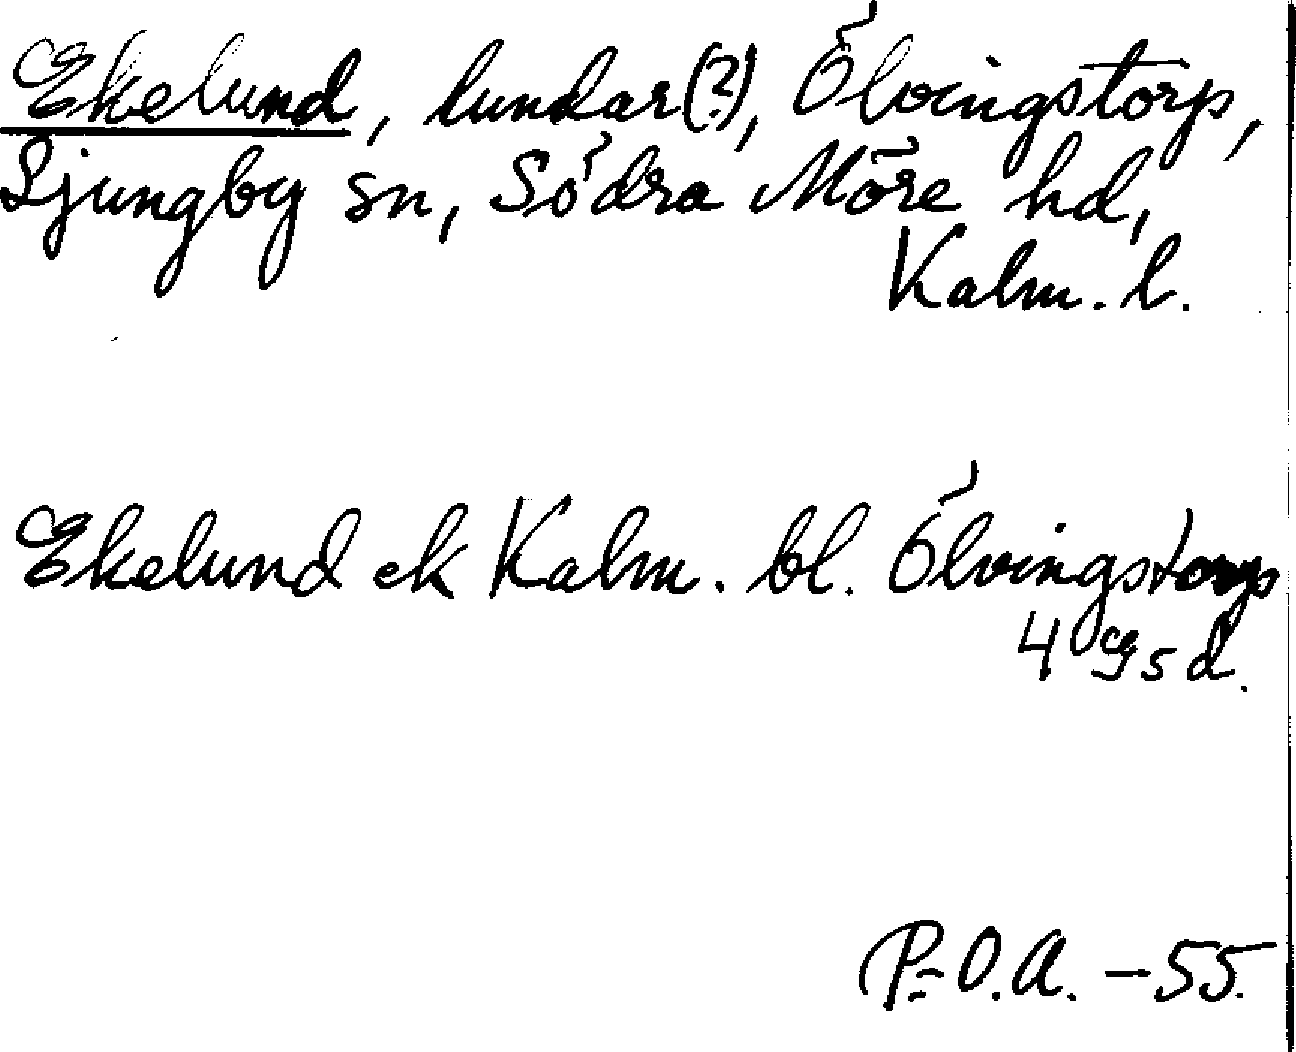 Ekelund, lundar(?), Ölvingstorp,
Ljungby sn, Södra Möre hd,
Kalm. l.
Ekelund ek Kalm. bl. Ölvingstorp
4 Gsd.
P.-O.A. -55.